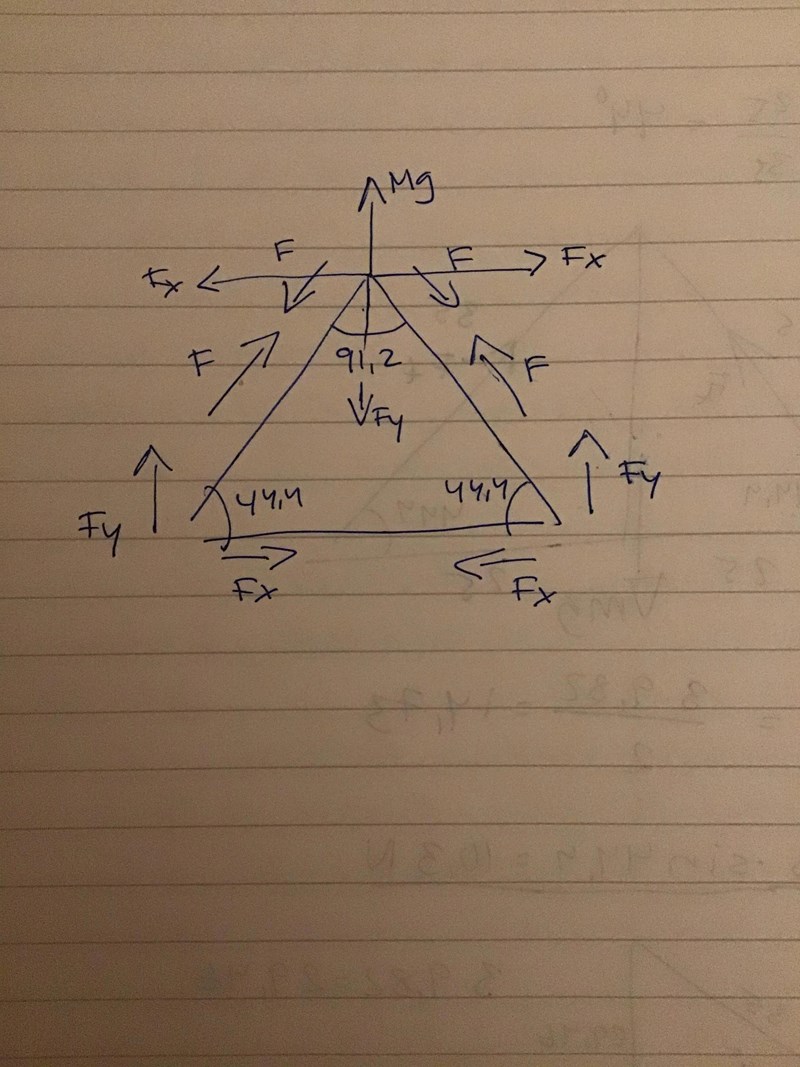 Mg
F F
Fx Fx
F 91,2 F
Fy
44,4 44,4
Fy Fy
Fx Fx